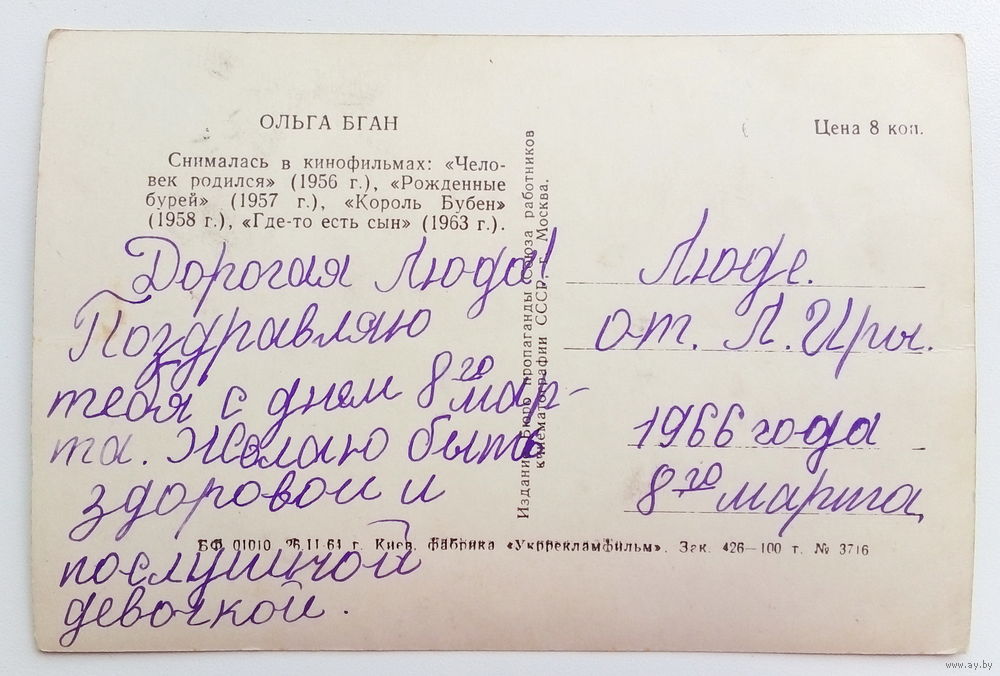 ОЛЬГА БГАН
Цена 8 коп.
Снималась в кинофильмах: «Чело-
век родился» (1956 г.), «Рожденные
бурей» (1957 г.), «Король Бубен»
(1958 г.), «Где-то есть сын» (1963 г.).
Дорогая Люда!
Поздравляю
тебя с днем 8го мар-
та. Желаю быть
здоровой и
послушной
девочкой.
Издание Бюро пропаганды Союза работников
кинематографии СССР, г. Москва.
Люде.
от. Л. Иры.
1966 года
8го марта
БФ 01010 26.11-64 г. Киев. фабрика «Укррекламфильм». Зак. 426—100 т. № 3716
www.ay.by